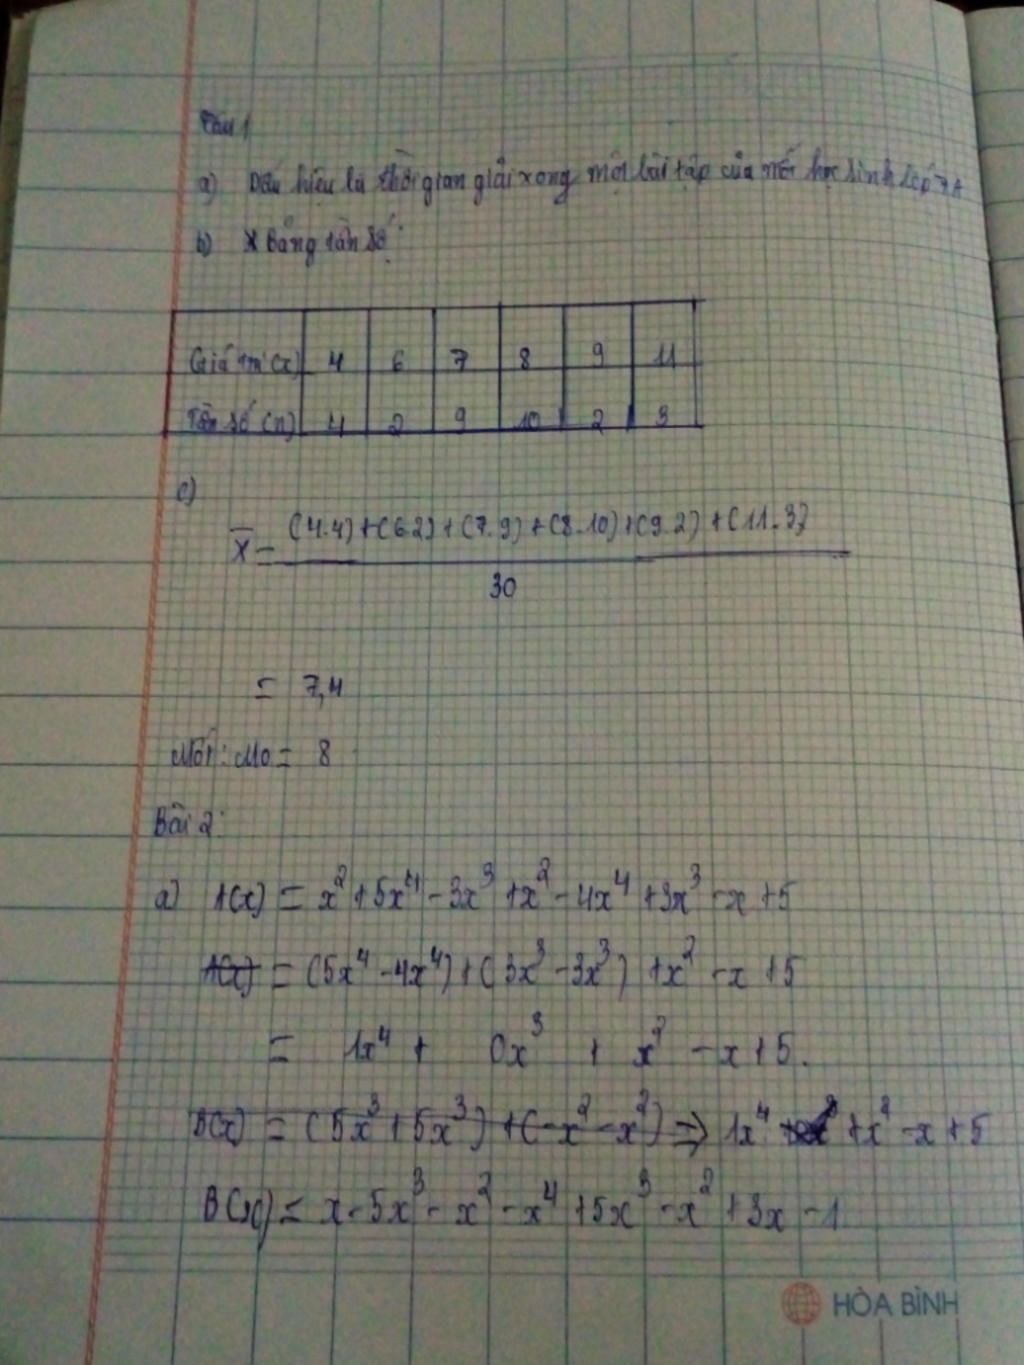 Câu 1
a) Dấu hiệu là thời gian giải xong một bài tập của mỗi học sinh lớp 7A
b) * Bảng tần số:
Giá trị (x) 4 6 7 8 9 11
Tần số (n) 4 2 9 10 2 3
c)
X̄ = (4.4)+(6.2)+(7.9)+(8.10)+(9.2)+(11.3)
30
= 7,4
Mốt: M0 = 8
Bài 2:
a) A(x) = x² + 5x⁴ - 3x³ + x² - 4x⁴ + 3x³ - x + 5
A(x) = (5x⁴ - 4x⁴) + (3x³ - 3x³) + x² - x + 5
= 1x⁴ + 0x³ + x² - x + 5.
B(x) = (5x³ + 5x³) + (-x² - x²) => 1x⁴ + x² - x + 5
B(x) = x - 5x³ - x² - x⁴ + 5x³ - x² + 3x - 1
HÒA BÌNH